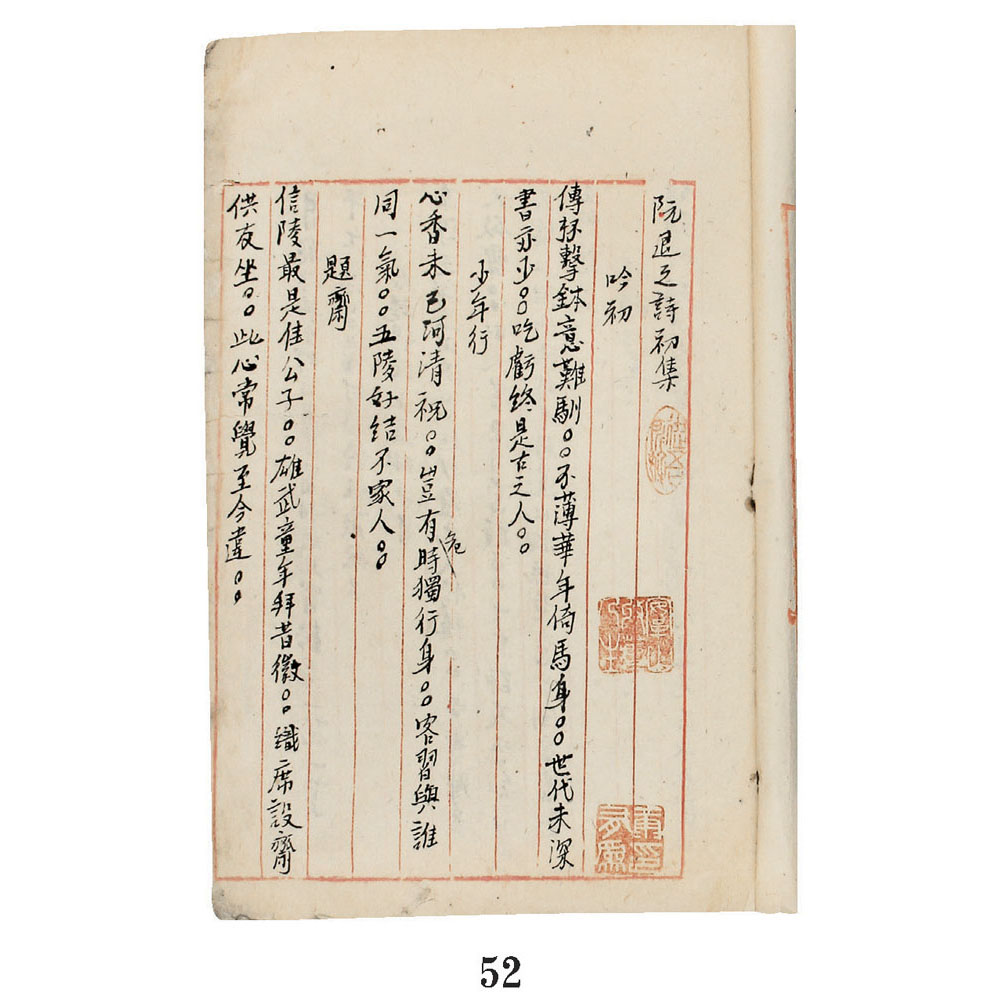 阮退之詩初集
吟初
傳杯擊鉢意難馴。。不薄華年倚馬身。。世代未深
書亦少。。吃虧終是古之人。。
少年行
心香未已河清祝。。豈有時危獨行身。。客習與誰
同一氣。。五陵好結不家人。。
題齋
信陵最是佳公子。。雄武童年拜昔徽。。織席設齋
供友坐。。此心常覺至今違。。
52